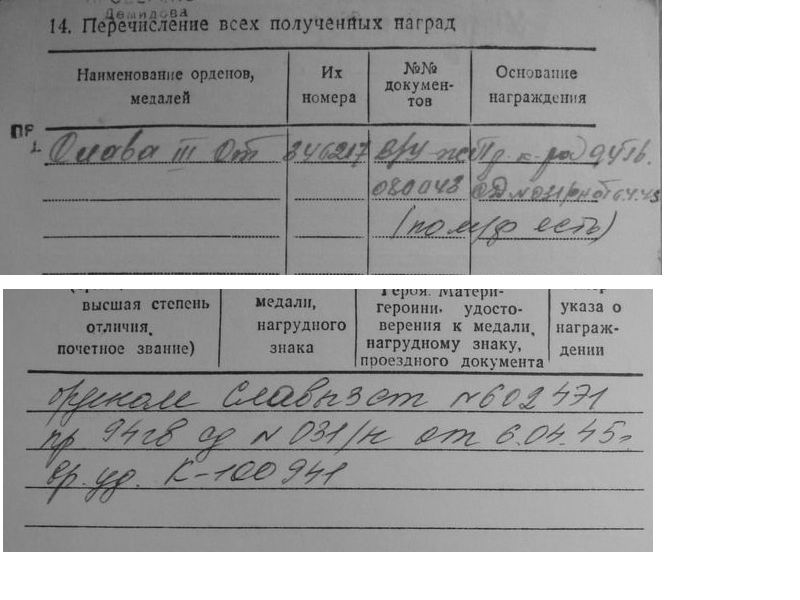 Демидова
14. Перечисление всех полученных наград
Наименование орденов, медалей
Их номера
№№ докумен-тов
Основание награждения
ПР
1. Слава III Ст 346217
080043
(по м/ф есть)
высшая степень отличия, почетное звание)
медали, нагрудного знака
Героя. Матери-героини, удосто-верения к медали, нагрудному знаку, проездного документа
указа о награж-дении
орденом Славы 3 ст №602471
пр 94 гв сд №031/н от 6.04.45г
вр. уд. К-100941